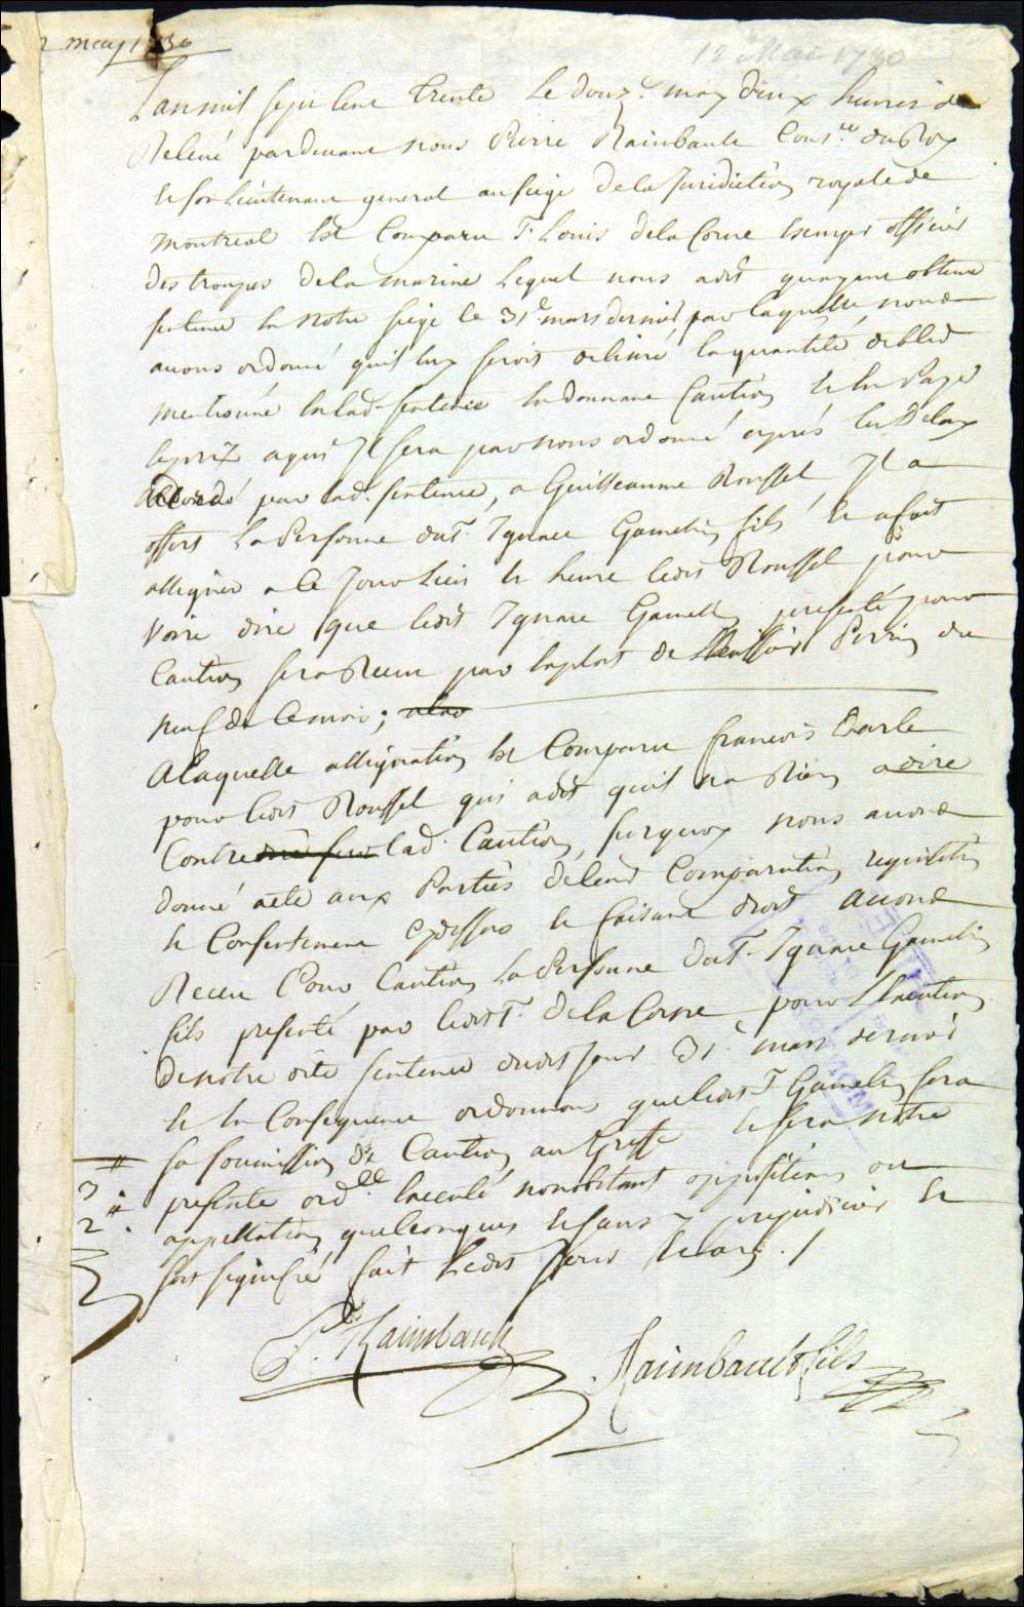 2 may 1730
12 Mai 1730
Lan mil sept cent trente le douz.e may deux heures de
Relevé pardevant nous Pierre Raimbault Cons.er du Roy
et son Lieutenant general au siege de la Juridiction royale de
montreal est Comparu S. Louis de la Corne Escuyer officier
des troupes de la marine lequel nous a dit quayant obtenu
sentence en notre siege le 31.e mars dernier, par laquelle nous
avons ordonné quil luy seroit delivré la quantité de bled
mentionné en lad. sentence en donnant Caution et en Payer
le prix a qui Il sera par nous ordonné aprés les Delays
par lad. sentence, a Guilleaume Roussel Il a
offert La Personne du S. Ignace Gamelin fils et a fait
assigner a Ce Jour Lieu et heure ledit Roussel pour
Voire dire que ledit Ignace Gamelin presenté pour
Caution sera Receu par Exploit de Perrin du
neuf de Ce mois;
A laquelle assignation est Comparu francois
pour ledit Roussel qui a dit quil na Rien a dire
Contre lad. Caution, surquoy nous avons
donné acte aux Parties de leurs Comparution, requisition
et Consentement Cydessus et faisant droit avons
Receu Pour Caution La Personne du S. Ignace Gamelin
fils presenté par ledit S. de la Corne pour Lexecution
de notre dite sentence dudit Jour 31.e mars dernier
et en Consequence ordonnons que ledit S Gamelin fera
sa soumission de Caution au Greffe et sera notre
presente ord.ce Executé nonobstant oppositions ou
appellations quelconques et sans y prejudicier et
soit signifié fait Ledit Jour et an. /
3 #
2 #.
P. Raimbault
Raimbault fils